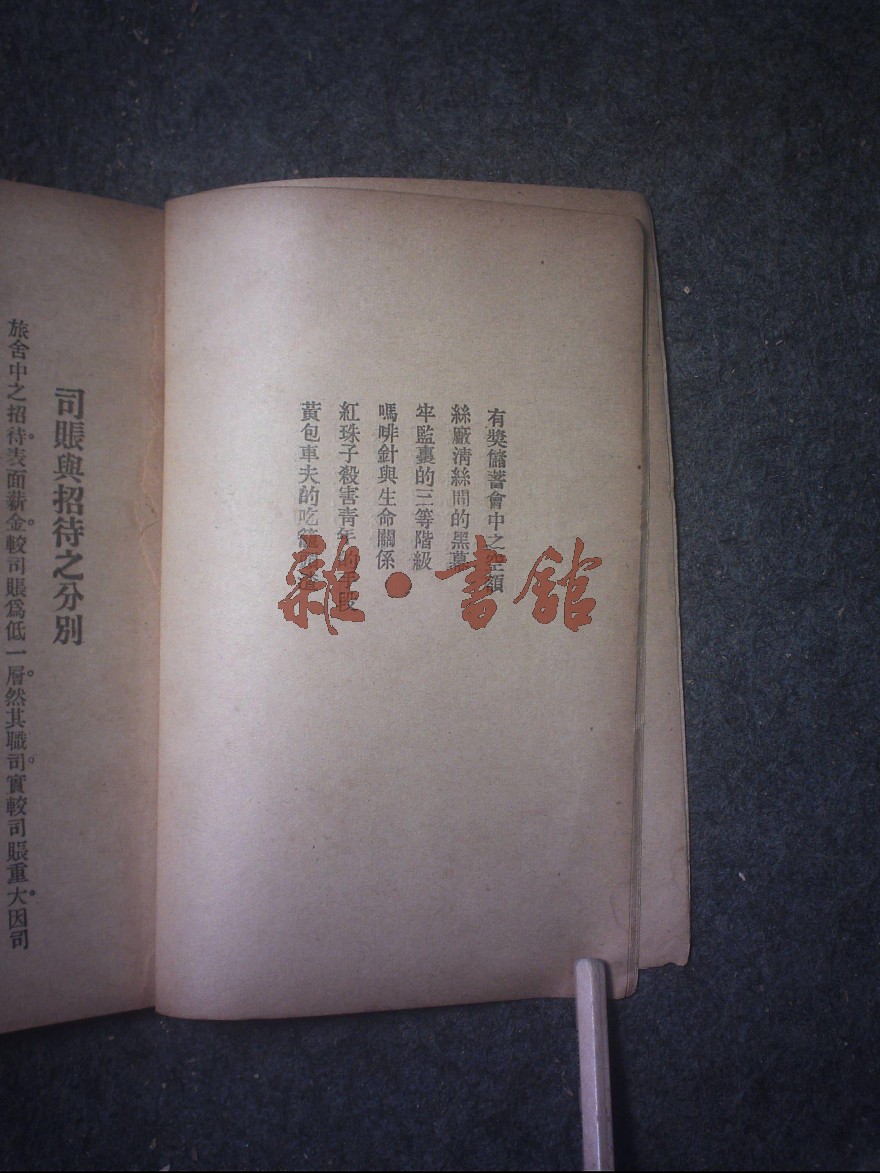 有獎儲蓄會中之空額
絲廠淸絲間的黑幕
牢監裏的三等階級
嗎啡針與生命關係
紅珠子殺害靑年的手段
黃包車夫的吃
雜·書館
司賬與招待之分別
旅舍中之招待。表面薪金。較司賬爲低一層。然其職司。實較司賬重大。因司